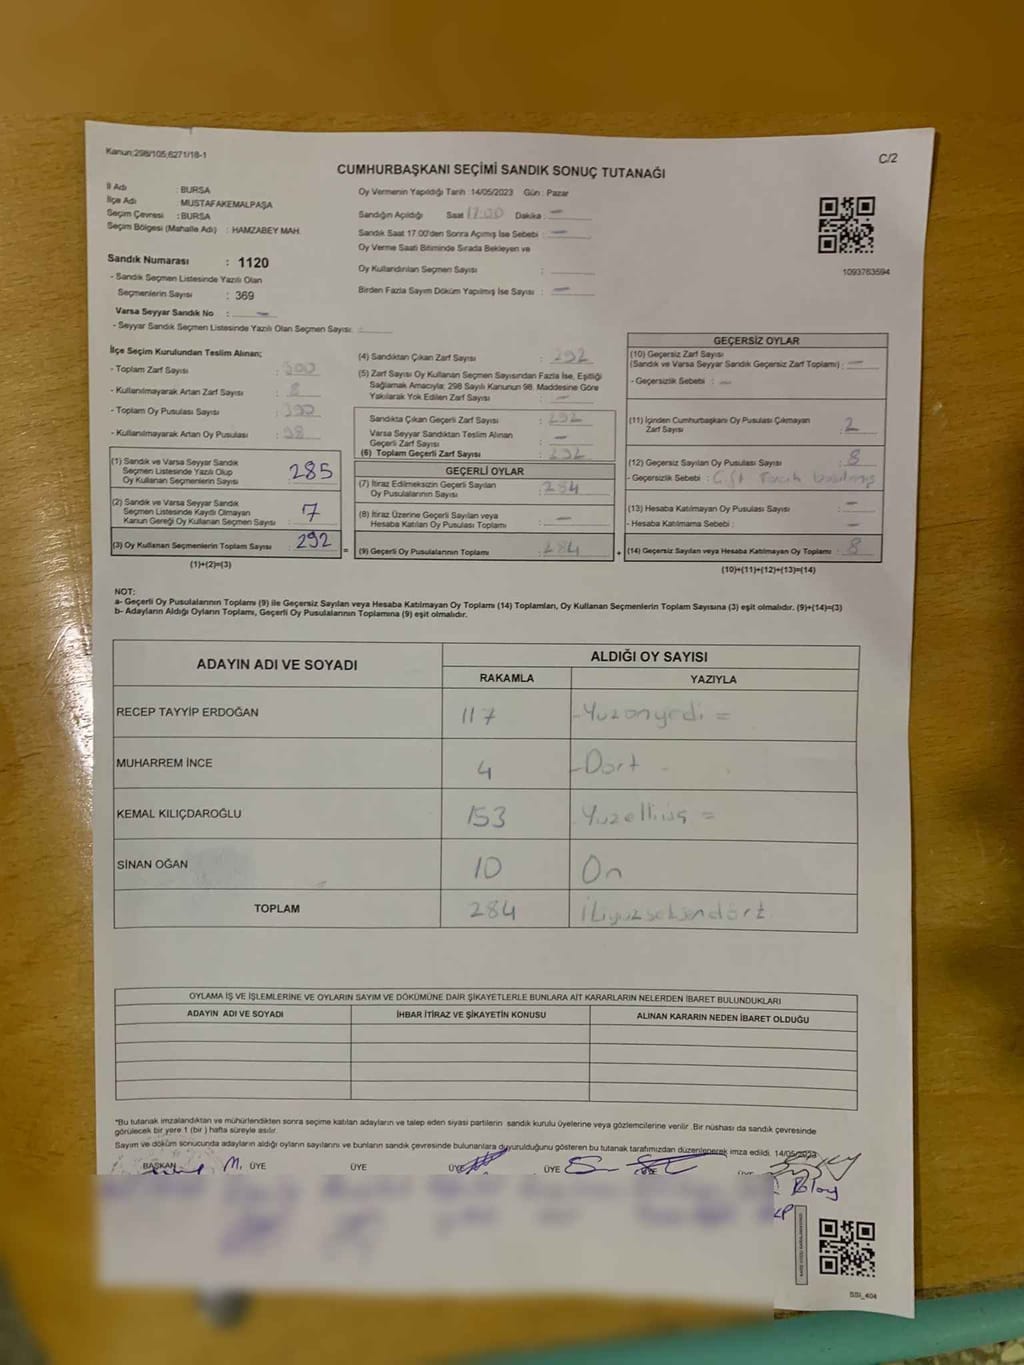 Kanun;298/105;6271/18-1
C/2
CUMHURBAŞKANI SEÇİMİ SANDIK SONUÇ TUTANAĞI
İl Adı : BURSA
İlçe Adı : MUSTAFAKEMALPAŞA
Seçim Çevresi : BURSA
Seçim Bölgesi (Mahalle Adı) : HAMZABEY MAH.
Sandık Numarası : 1120
- Sandık Seçmen Listesinde Yazılı Olan
Seçmenlerin Sayısı : 369
Varsa Seyyar Sandık No : —
- Seyyar Sandık Seçmen Listesinde Yazılı Olan Seçmen Sayısı:
Oy Vermenin Yapıldığı Tarih 14/05/2023 Gün : Pazar
Sandığın Açıldığı Saat 17:00 Dakika : —
Sandık Saat 17.00'den Sonra Açımış İse Sebebi : —
Oy Verme Saati Bitiminde Sırada Bekleyen ve
Oy Kullandırılan Seçmen Sayısı :
Birden Fazla Sayım Döküm Yapılmış İse Sayısı : —
1093763594
İlçe Seçim Kurulundan Teslim Alınan;
- Toplam Zarf Sayısı : 300
- Kullanılmayarak Artan Zarf Sayısı : 8
- Toplam Oy Pusulası Sayısı :
- Kullanılmayarak Artan Oy Pusulası : 98
(1) Sandık ve Varsa Seyyar Sandık
Seçmen Listesinde Yazılı Olup
Oy Kullanan Seçmenlerin Sayısı 285
(2) Sandık ve Varsa Seyyar Sandık
Seçmen Listesinde Kayıtlı Olmayan
Kanun Gereği Oy Kullanan Seçmen Sayısı : 7
(3) Oy Kullanan Seçmenlerin Toplam Sayısı : 292
(1)+(2)=(3)
=
(4) Sandıktan Çıkan Zarf Sayısı : 292
(5) Zarf Sayısı Oy Kullanan Seçmen Sayısından Fazla İse, Eşitliği
Sağlamak Amacıyla; 298 Sayılı Kanunun 98. Maddesine Göre
Yakılarak Yok Edilen Zarf Sayısı : —
Sandıkta Çıkan Geçerli Zarf Sayısı : 292
Varsa Seyyar Sandıktan Teslim Alınan
Geçerli Zarf Sayısı : —
(6) Toplam Geçerli Zarf Sayısı : 292
GEÇERLİ OYLAR
(7) İtiraz Edilmeksizin Geçerli Sayılan
Oy Pusulalarının Sayısı : 284
(8) İtiraz Üzerine Geçerli Sayılan veya
Hesaba Katılan Oy Pusulası Toplamı : —
(9) Geçerli Oy Pusulalarının Toplamı : 284
+
GEÇERSİZ OYLAR
(10) Geçersiz Zarf Sayısı
(Sandık ve Varsa Seyyar Sandık Geçersiz Zarf Toplamı) : —
- Geçersizlik Sebebi : —
(11) İçinden Cumhurbaşkanı Oy Pusulası Çıkmayan
Zarf Sayısı : 2
(12) Geçersiz Sayılan Oy Pusulası Sayısı : 8
- Geçersizlik Sebebi : Çift basılmış
(13) Hesaba Katılmayan Oy Pusulası Sayısı : —
- Hesaba Katılmama Sebebi : —
(14) Geçersiz Sayılan veya Hesaba Katılmayan Oy Toplamı : 8
(10)+(11)+(12)+(13)=(14)
NOT:
a- Geçerli Oy Pusulalarının Toplamı (9) ile Geçersiz Sayılan veya Hesaba Katılmayan Oy Toplamı (14) Toplamları, Oy Kullanan Seçmenlerin Toplam Sayısına (3) eşit olmalıdır. (9)+(14)=(3)
b- Adayların Aldığı Oyların Toplamı, Geçerli Oy Pusulalarının Toplamına (9) eşit olmalıdır.
ADAYIN ADI VE SOYADI
ALDIĞI OY SAYISI
RAKAMLA YAZIYLA
RECEP TAYYİP ERDOĞAN 117 -Yuzonyedi =
MUHARREM İNCE 4 -Dort -
KEMAL KILIÇDAROĞLU 153 Yuzelliüç =
SİNAN OĞAN 10 On
TOPLAM 284 ikiyuzseksendört
OYLAMA İŞ VE İŞLEMLERİNE VE OYLARIN SAYIM VE DÖKÜMÜNE DAİR ŞİKAYETLERLE BUNLARA AİT KARARLARIN NELERDEN İBARET BULUNDUKLARI
ADAYIN ADI VE SOYADI İHBAR İTİRAZ VE ŞİKAYETİN KONUSU ALINAN KARARIN NEDEN İBARET OLDUĞU
*Bu tutanak imzalandıktan ve mühürlendikten sonra seçime katılan adayların ve talep eden siyasi partilerin sandık kurulu üyelerine veya gözlemcilerine verilir. Bir nüshası da sandık çevresinde
görülecek bir yere 1 (bir ) hafta süreyle asılır.
Sayım ve döküm sonucunda adayların aldığı oyların sayılarını ve bunların sandık çevresinde bulunanlara duyurulduğunu gösteren bu tutanak tarafımızdan düzenlenerek imza edildi. 14/05/2023
BAŞKAN M. ÜYE ÜYE ÜYE ÜYE
SSI_404